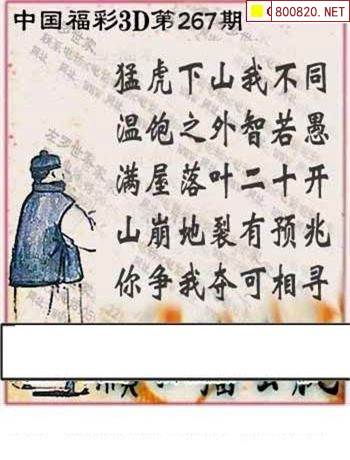 中国福彩3D第267期
800820.NET
猛虎下山我不同
温饱之外智若愚
满屋落叶二十开
山崩地裂有预兆
你争我夺可相寻